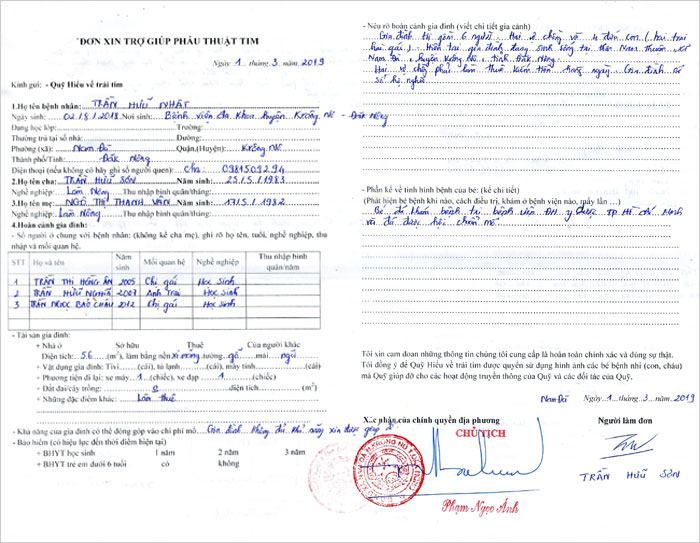 ĐƠN XIN TRỢ GIÚP PHẪU THUẬT TIM
Ngày 1 tháng 3 năm 2019
Kính gửi: - Quỹ Hiểu về trái tim
1.Họ tên bệnh nhân: TRẦN HỮU NHẬT
Ngày sinh: 02/8/2018 Nơi sinh: Bệnh viện đa khoa huyện Krông Nô - Đắk Nông
Đang học lớp: Trường:
Thường trú tại số nhà: Đường:
Phường (xã): Nam Đà Quận,(Huyện): Krông Nô
Thành phố/Tỉnh: Đắk Nông
Điện thoại (nếu không có hãy ghi số người quen): Cha: 0981509294
2.Họ tên cha: TRẦN HỮU SƠN Năm sinh: 25/5/1983
Nghề nghiệp: Làm Nông Thu nhập bình quân/tháng:
3.Họ tên mẹ: NGÔ THỊ THANH VÂN Năm sinh: 17/5/1982
Nghề nghiệp: Làm Nông Thu nhập bình quân/tháng:
4.Hoàn cảnh gia đình:
- Số người ở chung với bệnh nhân: (không kê cha mẹ), ghi rõ họ tên, tuổi, nghề nghiệp, thu nhập và mối quan hệ.
STT Họ và tên Năm sinh Mối quan hệ Nghề nghiệp Thu nhập bình quân/năm
1 TRẦN THỊ HỒNG ÂN 2005 Chị gái Học sinh
2 TRẦN HỮU NGHĨA 2007 Anh trai Học sinh
3 TRẦN NGỌC BẢO CHÂU 2012 Chị gái Học sinh
- Tài sản gia đình:
+ Nhà ở Sở hữu Thuê Của người khác
Diện tích: 56 (m²), làm bằng nền xi măng tường gỗ mái ngói
+ Vật dụng gia đình: Tivi (cái), tủ lạnh (cái), máy vi tính (cái)
+ Phương tiện đi lại: xe máy 1 (chiếc), xe đạp 1 (chiếc)
+ Đất đai/cây trồng: 0 diện tích (m²)
+ Những đặc điểm khác: Làm thuê
- Khả năng của gia đình có thể đóng góp vào chi phí mổ: Gia đình không đủ khả năng xin được giúp đỡ
- Bảo hiểm (có hiệu lực đến thời điểm hiện tại)
+ BHYT 1 năm 2 năm 3 năm
+ BHYT trẻ em dưới 6 tuổi có không
- Nêu rõ hoàn cảnh gia đình (viết chi tiết gia cảnh)
Gia đình tôi gồm 6 người. Hai vợ chồng và 4 đứa con (hai trai
hai gái). Hiện tại gia đình đang sinh sống tại thôn Nam Thuận, xã
Nam Đà, huyện Krông Nô, tỉnh Đắk Nông.
Hai vợ chồng phải làm thuê kiếm tiền hàng ngày. Gia đình có
sổ hộ nghèo
- Phần kể về tình hình bệnh của bé: (kể chi tiết)
(Phát hiện bệnh khi nào, cách điều trị, khám ở bệnh viện nào, mấy lần ...)
Bé đã khám bệnh tại bệnh viện ĐH y dược TP Hồ Chí Minh
và đã được hội chẩn mổ.
Tôi xin cam đoan những thông tin chúng tôi cung cấp là hoàn toàn chính xác và đúng sự thật.
Tôi đồng ý để Quỹ Hiểu về trái tim được quyền sử dụng hình ảnh các bé bệnh nhi (con, cháu)
mà Quỹ giúp đỡ cho các hoạt động truyền thông của Quỹ và các đối tác của Quỹ.
Nam Đà Ngày 1 tháng 3 năm 2019
Xác nhận của chính quyền địa phương Người làm đơn
CHỦ TỊCH
TRẦN HỮU SƠN
Phạm Ngọc Ánh